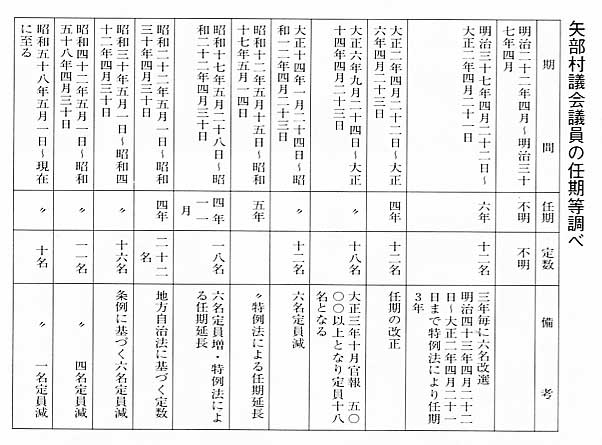 矢部村議会議員の任期等調べ
期間
任期
定数
備考
明治二十二年四月～明治三十
七年四月
不明
不明
明治三十七年四月二十二日～
大正二年四月二十一日
六年
十二名
三年毎に六名改選
明治四十三年四月二十二
日～大正二年四月二十一
日まで特例法により任期
3年
大正二年四月二十二日～大正
六年四月二十三日
四年
十二名
任期の改正
大正六年九月二十四日～大正
十四年四月二十三日
〃
十八名
大正三年十月官報 五〇
〇〇以上となり定員十八
名となる
大正十四年一月二十四日～昭
和一二年四月二十三日
〃
十二名
六名定員減
昭和十二年五月十五日～昭和
十七年五月一四日
五年
〃特例法による任期延長
昭和十七年五月二十八日～昭
和二十二年四月三十日
四年
一一
月
一八名
六名定員増・特例法によ
る任期延長
昭和二十二年五月一日～昭和
三十年四月三十日
四年
二十二
名
地方自治法に基づく定数
昭和三十年五月一日～昭和四
十二年四月三十日
〃
十六名
条例に基づく六名定員減
昭和四十二年五月一日～昭和
五十八年四月三十日
〃
一一名
〃 四名定員減
昭和五十八年五月一日～現在
に至る
〃
十名
〃 一名定員減